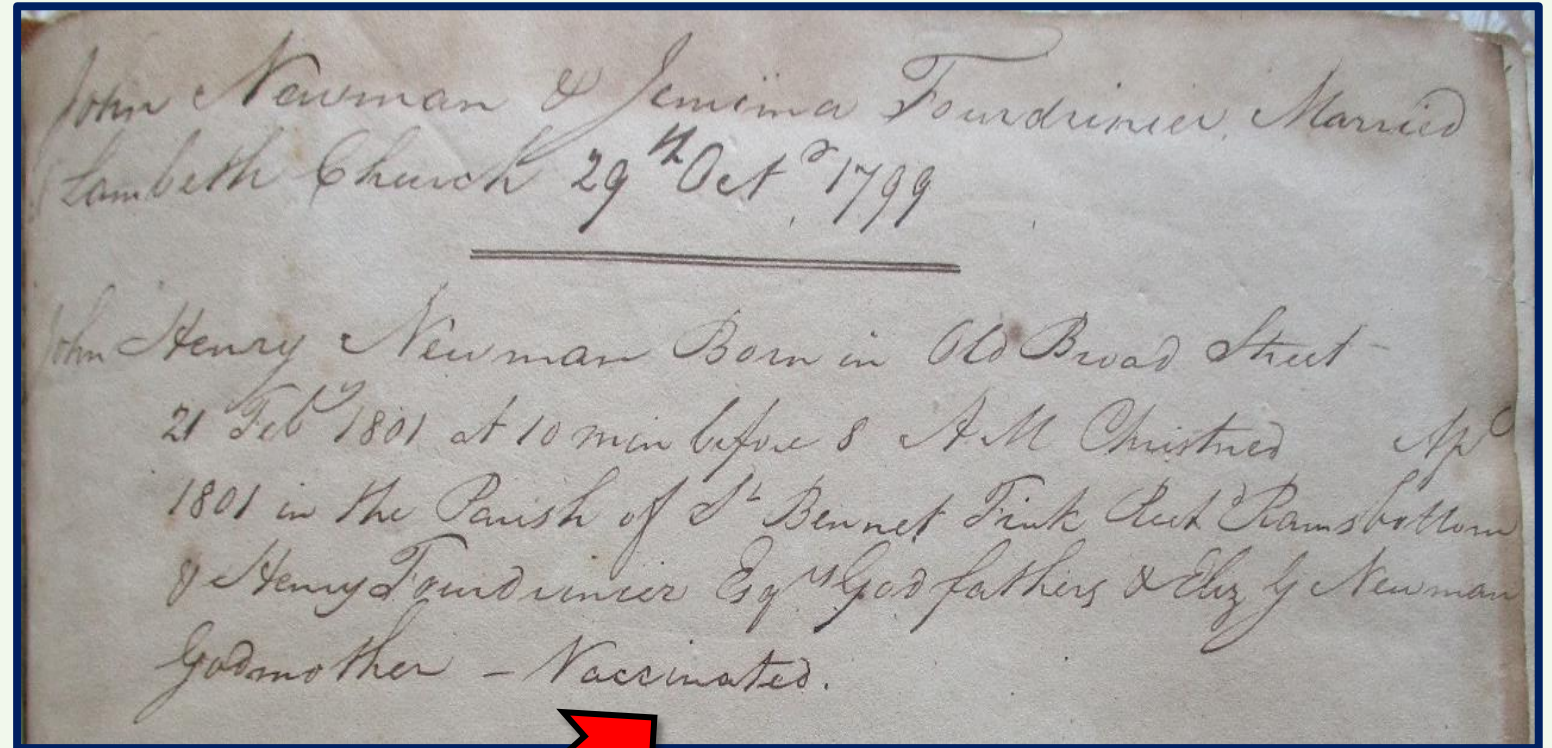 John Newman & Jemima Fourdrinier Married
Lambeth Church 29th Octr 1799
John Henry Newman Born in Old Broad Street
21 Feby 1801 at 10 min before 8 A M Christned Apl
1801 in the Parish of St Bennet Fink Richd Ramsbottom
& Henry Fourdrinier Esqrs Godfathers & Eliz G Newman
Godmother - Vaccinated.